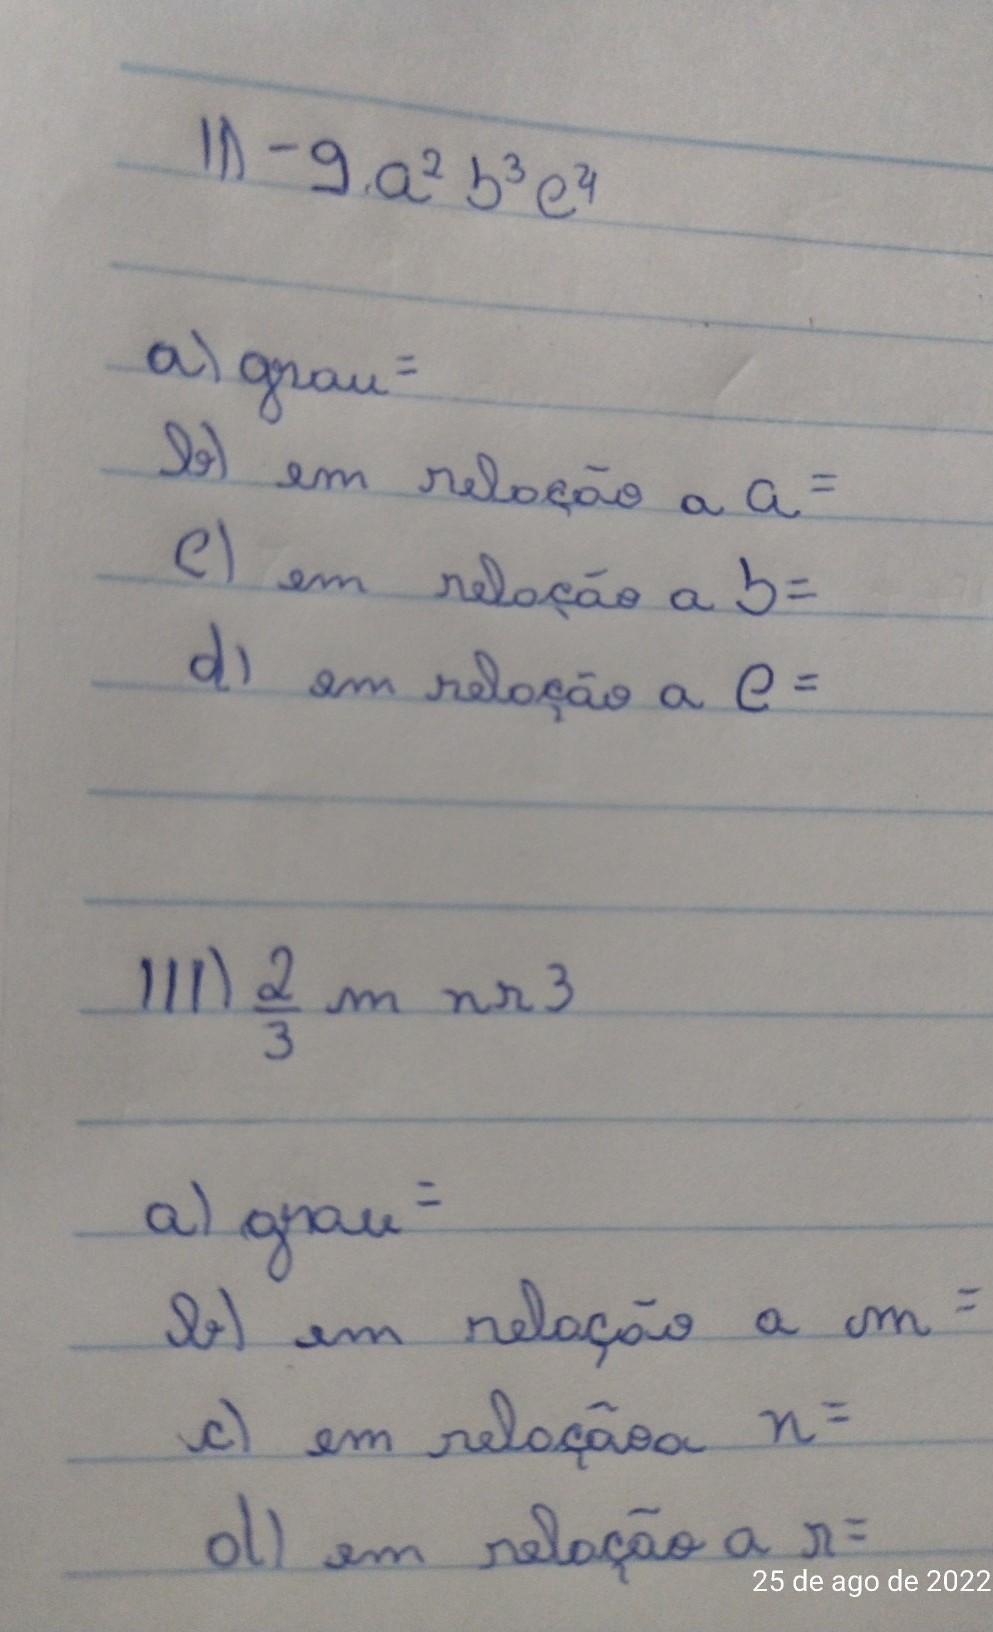 II) -9.a² b³ c⁴
a) grau =
b) em relação a a =
c) em relação a b =
d) em relação a c =
III) 2/3 m nr3
a) grau =
b) em relação a m =
c) em relação a n =
d) em relação a r =
25 de ago de 2022